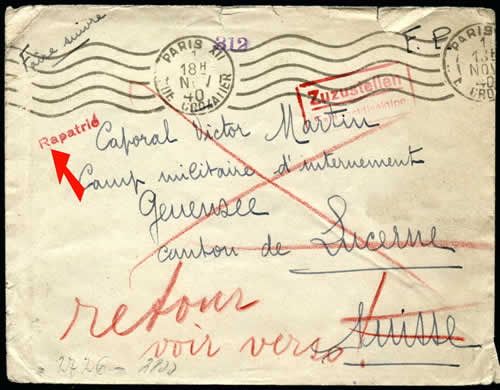 Faire suivre
PARIS XI
18H
7 NOV
40
RUE CROZATIER
312
F. P.
PARIS
NOV
Zuzustellen
Rapatrié
Caporal Victor Martin
Camp militaire d'internement
Geuensee
canton de Lucerne
Suisse
retour
voir verso!
2726 -